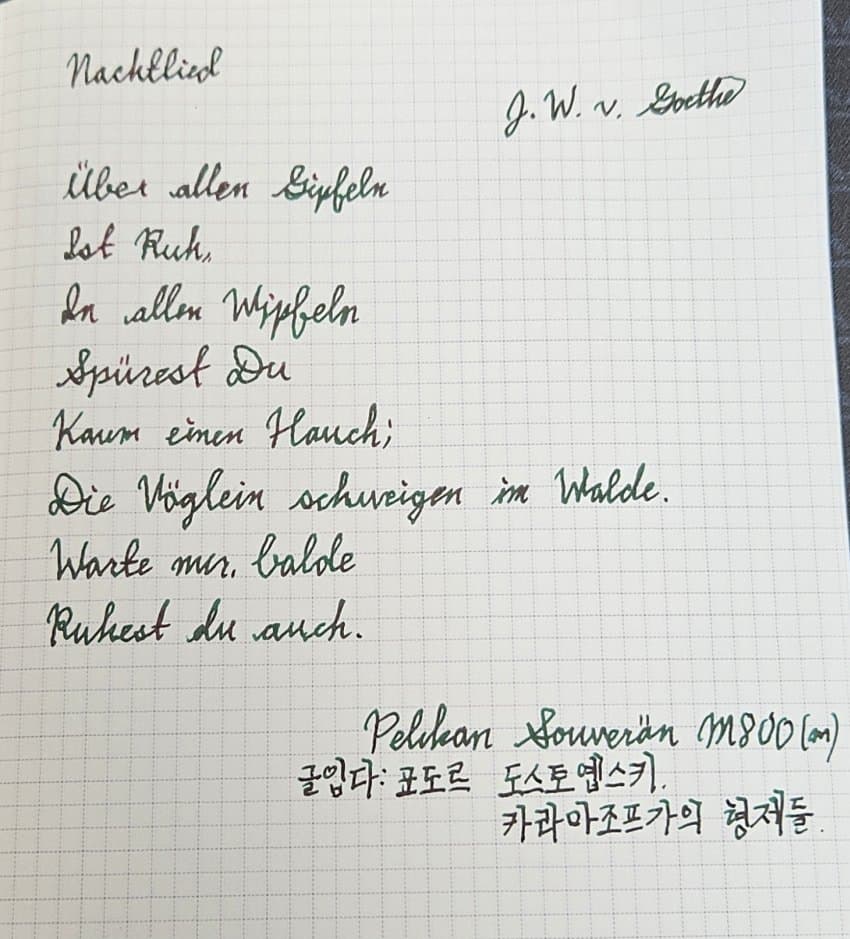 Nachtlied
J. W. v. Goethe
Über allen Gipfeln
Ist Ruh,
In allen Wipfeln
Spürest Du
Kaum einen Hauch;
Die Vöglein schweigen im Walde.
Warte nur, balde
Ruhest du auch.
Pelikan Souverän M800 (m)
글입다: 표도르 도스토옙스키.
카라마조프가의 형제들.